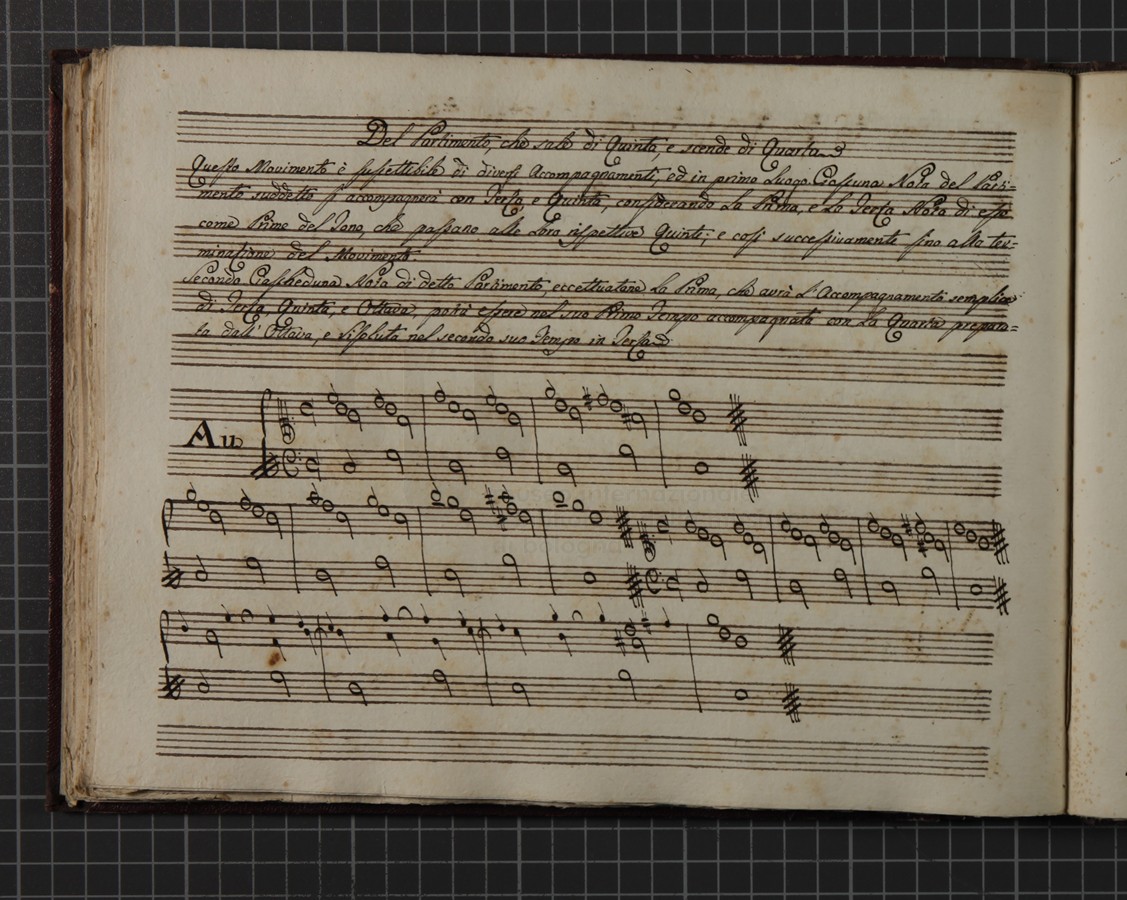 Del Partimento, che sale di Quinta, e scende di Quarta
Questo Movimento è suscettibile di diversi Accompagnamenti, ed in primo Luogo. Ciascuna Nota del Parti=
mento suddetto si accompagnerà con Terza, e Quinta, considerando La Prima, e La Terza Nota di esso
come Prime del Tono, che passano alle Loro rispettive Quinte; e così successivamente sino alla ter=
minazione del Movimento.
Secondo Ciascheduna Nota di detto Partimento, eccettuatone La Prima, che avrà L'Accompagnamento semplice
di Terza, Quinta, e Ottava, potrà essere nel suo Primo Tempo accompagnata con La Quarta prepara=
ta dall'Ottava, e risoluta nel secondo suo Tempo in Terza
museo internazionale
di bologna